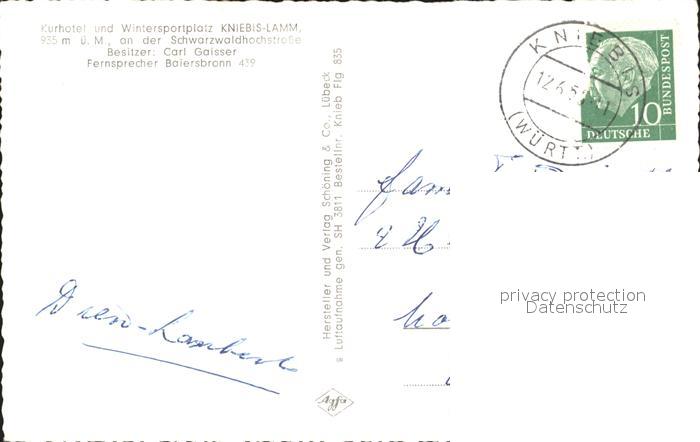 Kurhotel und Wintersportplatz KNIEBIS-LAMM,
935 m ü. M., an der Schwarzwaldhochstraße
Besitzer: Carl Gaisser
Fernsprecher Baiersbronn 439
Hersteller und Verlag Schöning & Co., Lübeck
Luftaufnahme gen. SH 3811 Bestellnr. Knieb Flg 835
Agfa
KNIEBIS
(WÜRTT)
10
DEUTSCHE
BUNDESPOST
privacy protection
Datenschutz